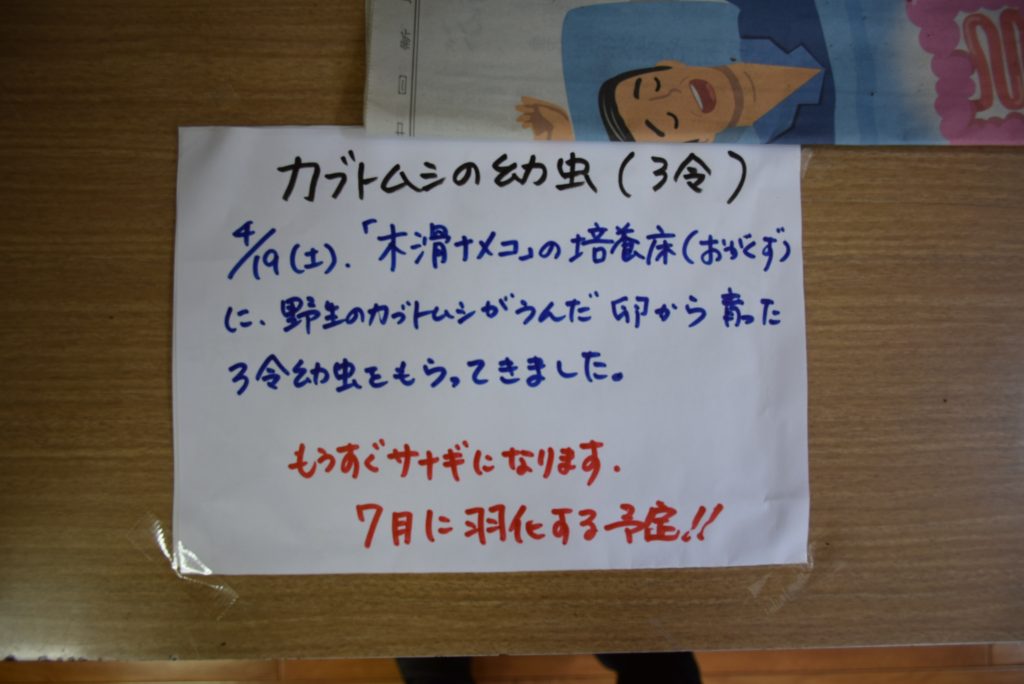 カブトムシの幼虫(3令)
4/19(土).「木滑ナメコ」の培養床(おがくず)
に、野生のカブトムシがうんだ 卵から 育った
3令幼虫をもらってきました。
もうすぐサナギになります.
7月に羽化する予定!!